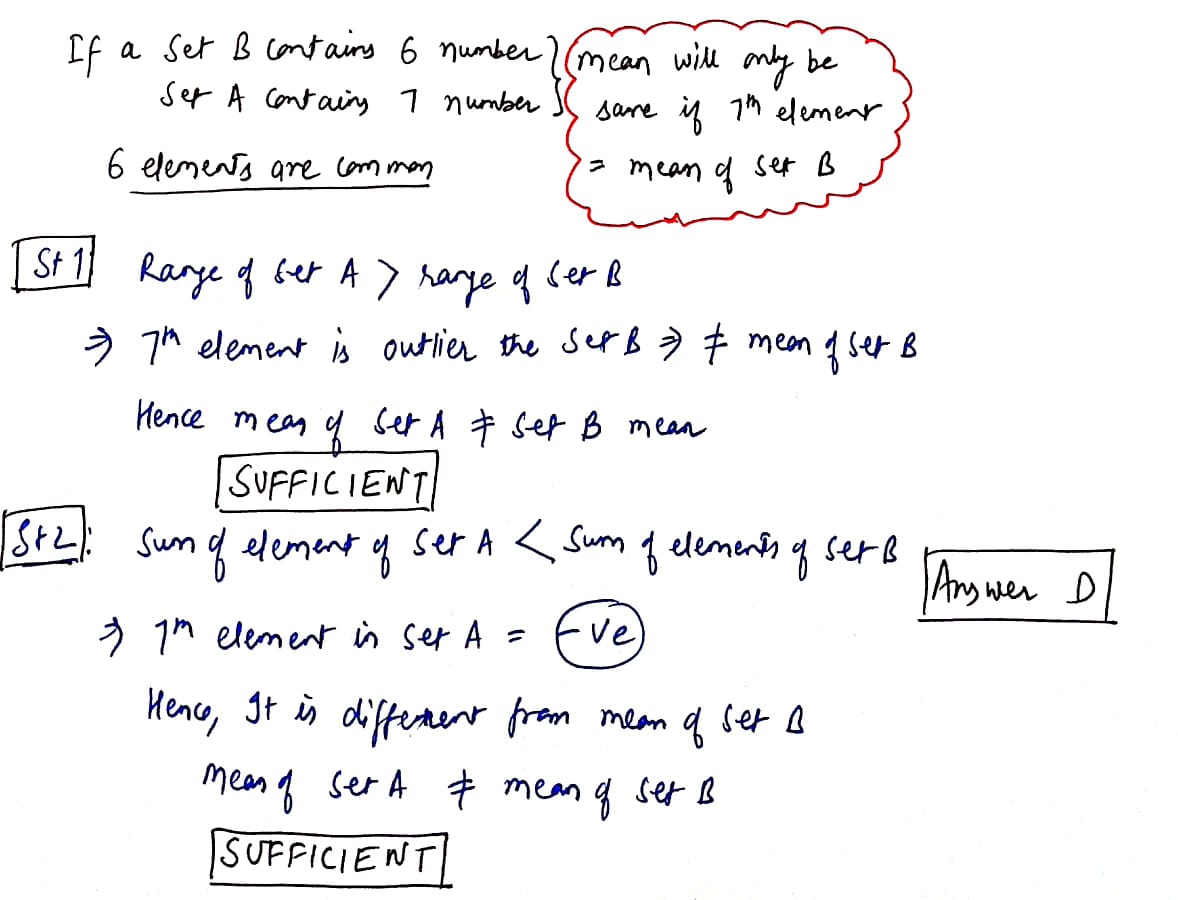 If a Set B Contains 6 number } mean will only be
Set A Contains 7 number } same if 7th element
6 elements are common = mean of Set B
St 1 Range of Set A > range of Set B
⇒ 7th element is outlier the Set B ⇒ ≠ mean of Set B
Hence mean of Set A ≠ Set B mean
SUFFICIENT
St 2: Sum of element of Set A < Sum of elements of Set B
Answer D
⇒ 7th element in Set A = -ve
Hence, It is different from mean of Set B
Mean of Set A ≠ mean of Set B
SUFFICIENT